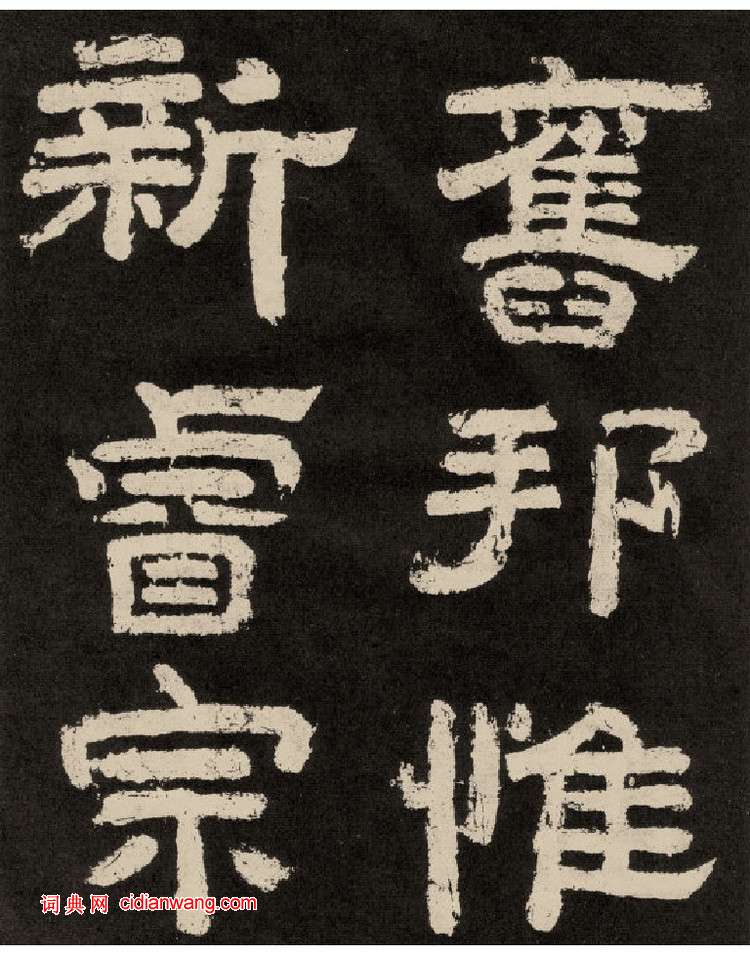 舊邦惟
新睿宗
词典网 cidianwang.com